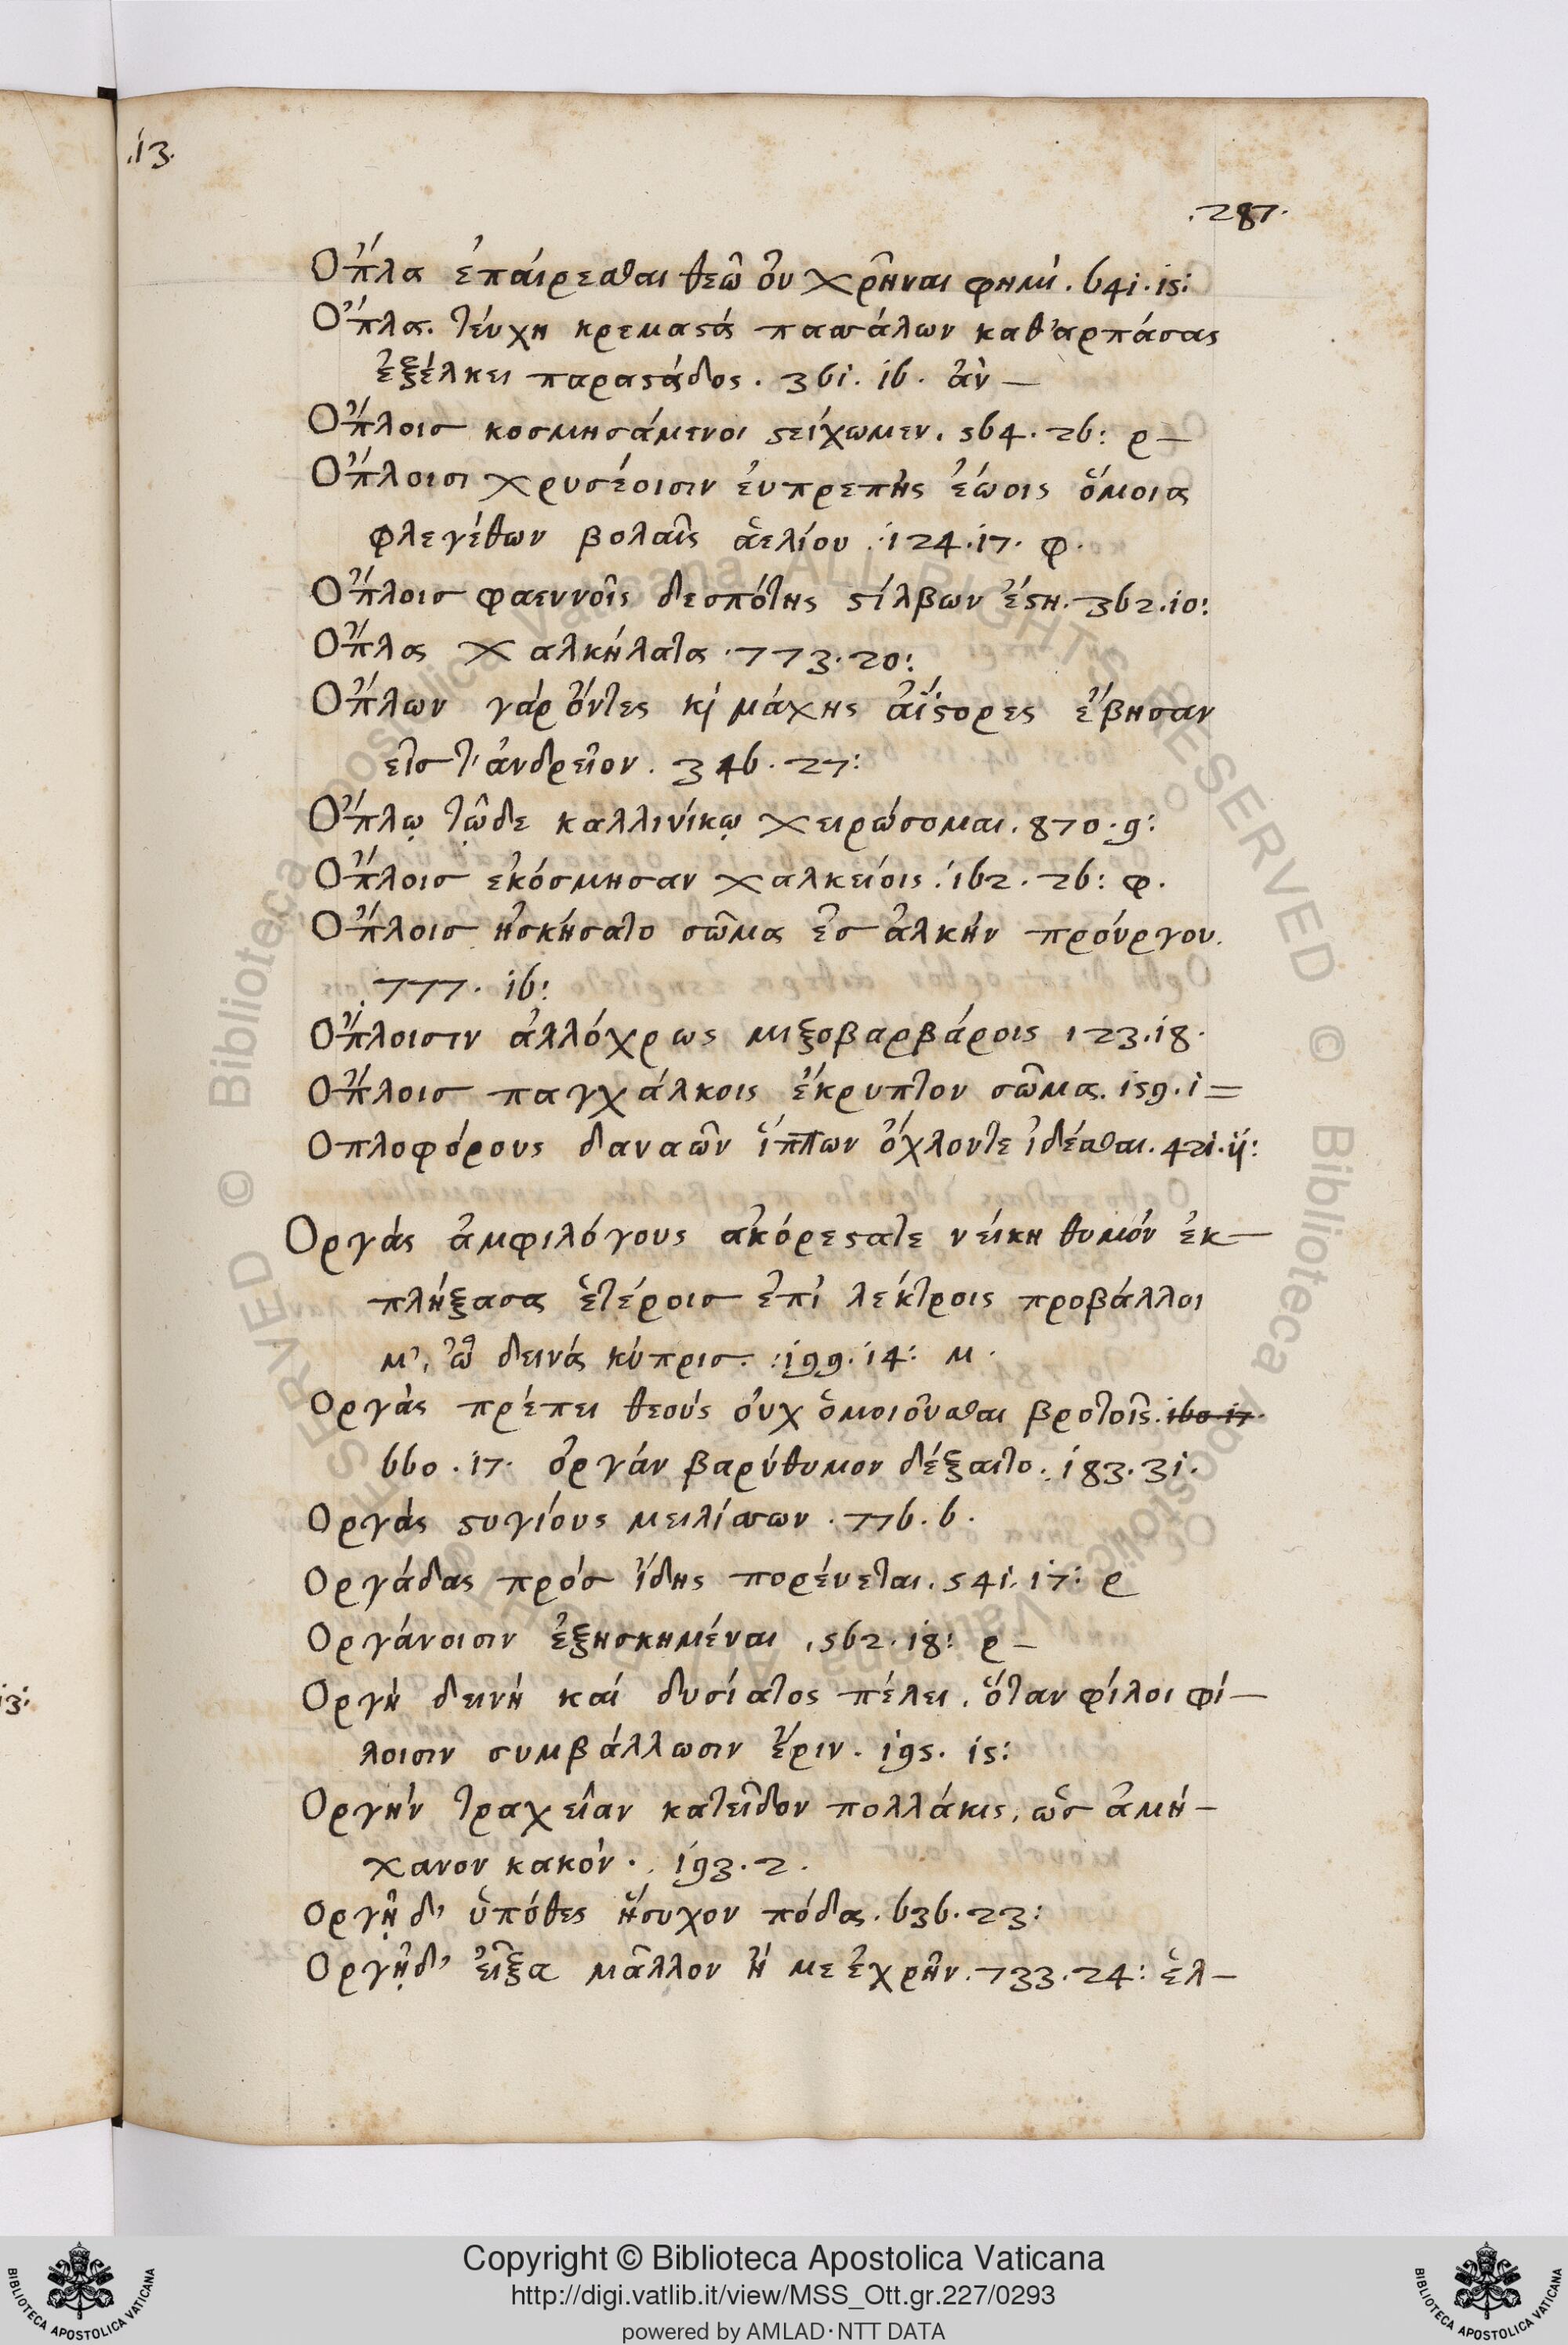 .13.
.287.
Ὅπλα ἐπαίρεσθαι θεῶ οὐ χρῆναι φημί. 641. 15:
Ὅπλα. τεύχη κρεμαστά πασσάλων καθ' αρπάσας
ἐξέλκει παραστάδος. 361. 16. ἀν —
Ὅπλοισ κοσμησάμενοι στείχωμεν. 564. 26: ρ —
Ὅπλοισι χρυσέοισιν ἐυπρεπὴς ἑώοις ὅμοια
φλεγέθων βολαῖς ἀελίου. 124. 17. φ.
Ὅπλοισ φαεννοῖς δεσπότης στίλβων ἔστη. 362. 10:
Ὅπλα χαλκήλατα. 773. 20:
Ὅπλων γάρ ὄντες κὶ μάχης ἀΐστορες ἔβησαν
εἰσ τ' ἀνδρεῖον. 346. 27:
Ὅπλῳ τῷδε καλλινίκῳ χειρώσομαι. 870. 9:
Ὅπλοισ εκόσμησαν χαλκείοις. 162. 26: φ.
Ὅπλοισ ἠσκήσατο σῶμα ἐσ ἀλκὴν προύργου.
777. 16:
Ὅπλοισιν ἀλλόχρως μιξοβαρβάροις 123. 18.
Ὅπλοισ παγχάλκοις ἔκρυπτον σῶμα. 159. 1 =
Οπλοφόρους δαναῶν ἵππων ὄχλοντε ἰδέσθαι. 421. 11:
Οργάς ἀμφιλόγους ακόρεστατε νείκη θυμόν ἐκ —
πλήξασα ἑτέροισ ἐπὶ λέκτροις προβάλλοι
μ', ὦ δεινά κύπρισ. 199. 14: μ.
Οργὰς πρέπει θεούς οὐχ ὁμοιοῦσθαι βροτοῖς. 160. 17.
660. 17. ὀργάν βαρύθυμον δέξαιτο. 183. 31.
Οργὰς στυγίους μειλίσσων. 776. 6.
Οργάδας πρόσ ἴδης πορέυεται. 541. 17: ρ
Οργάνοισιν ἐξησκημέναι, 562. 18: ρ —
Οργὴ δεινὴ καί δυσίατος πέλει, ὅταν φίλοι φί —
λοισιν συμβάλλωσιν ἔριν. 195. 15:
Οργὴν τραχεῖαν κατεῖδον πολλάκις, ὡσ ἀμή —
χανον κακόν. 193. 2.
Οργῇ δ' ὑπόθες ἥσυχον πόδα. 636. 23:
Οργῇ δ' εἶξα μᾶλλον ἤ με ἐχρῆν. 733. 24: ἑλ —
13:
Copyright © Biblioteca Apostolica Vaticana
http://digi.vatlib.it/view/MSS_Ott.gr.227/0293
powered by AMLAD·NTT DATA